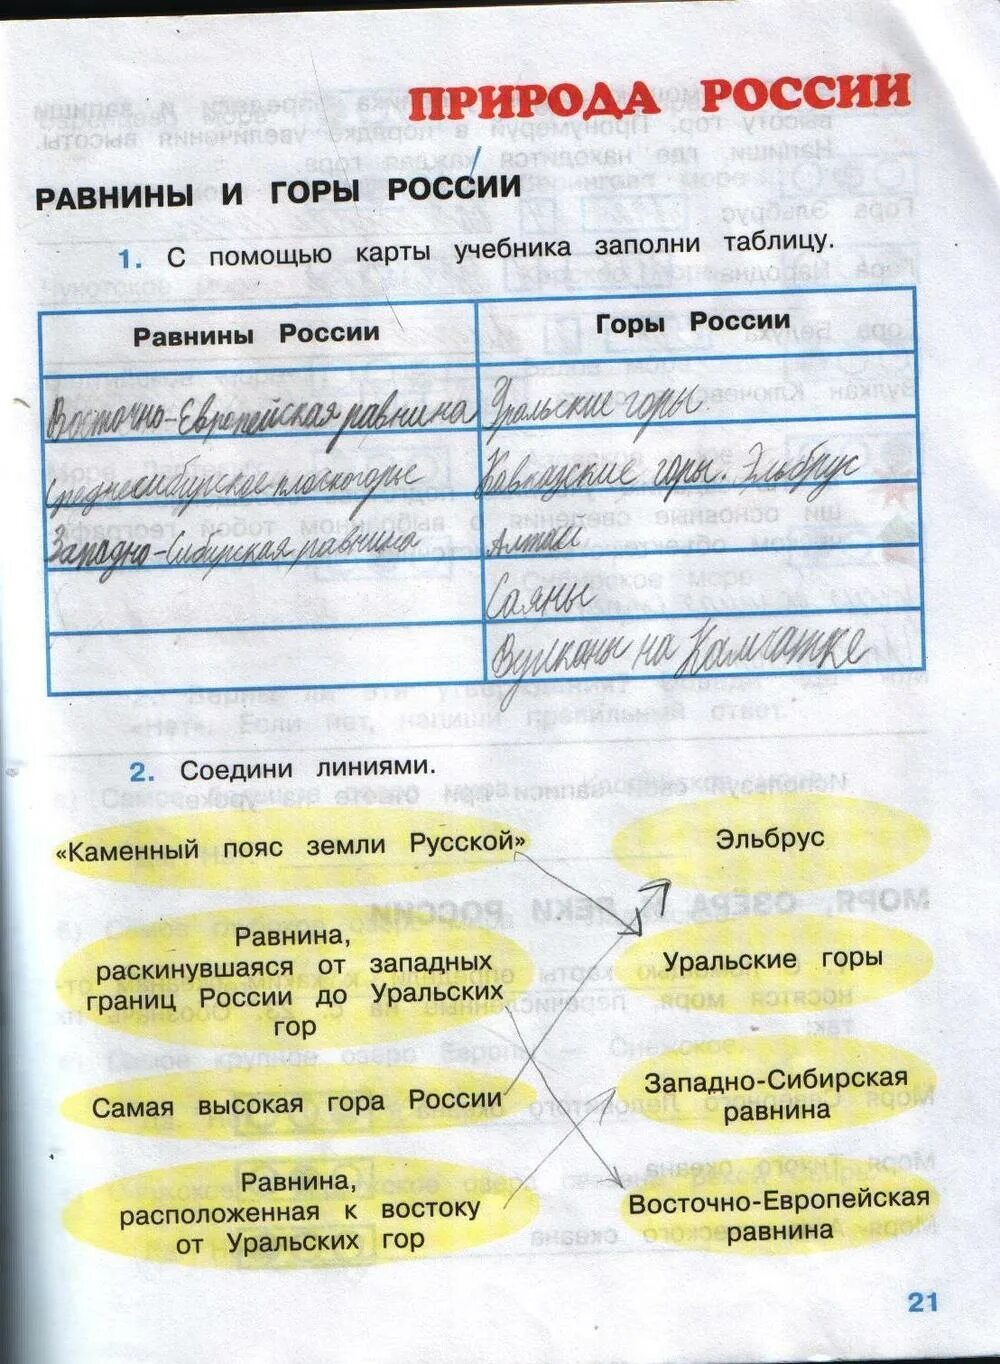 ПРИРОДА РОССИИ
РАВНИНЫ И ГОРЫ РОССИИ
1. С помощью карты учебника заполни таблицу.
Равнины России
Горы России
Восточно-Европейская равнина
Уральские горы.
Среднесибирское плоскогорье
Кавказские горы. Эльбрус
Западно-Сибирская равнина
Алтай
Саяны
Вулканы на Камчатке
2. Соедини линиями.
«Каменный пояс земли Русской»
Эльбрус
Равнина,
раскинувшаяся от западных
границ России до Уральских
гор
Уральские горы
Самая высокая гора России
Западно-Сибирская
равнина
Равнина,
расположенная к востоку
от Уральских гор
Восточно-Европейская
равнина
21